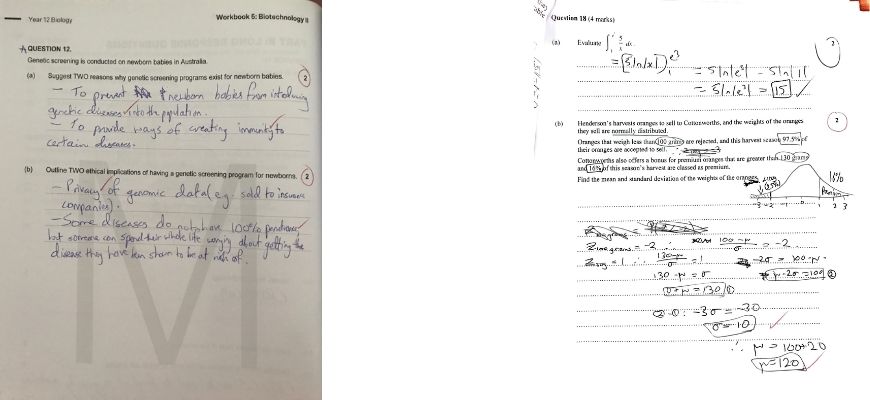 Year 12 Biology
Workbook 5: Biotechnology II
QUESTION 12.
Genetic screening is conducted on newborn babies in Australia.
(a) Suggest TWO reasons why genetic screening programs exist for newborn babies.
2
- To prevent newborn babies from introducing
genetic diseases into the population.
- To provide ways of creating immunity to
certain diseases.
(b) Outline TWO ethical implications of having a genetic screening program for newborns.
2
- Privacy of genomic data (e.g. sold to insurance
companies).
- Some diseases do not have 100%
but someone can spend their whole life worrying about getting the
disease they have been shown to be at risk of.
Question 18 (4 marks)
(a) Evaluate
2
= [5ln|x|]
= 5ln|e³| - 5ln|1|
= 5ln|e³| = 15
(b) Henderson's harvests oranges to sell to Cottonworths, and the weights of the oranges
they sell are normally distributed.
2
Oranges that weigh less than 100 grams are rejected, and this harvest season 97.5% of
their oranges are accepted to sell.
Cottonworths also offers a bonus for premium oranges that are greater than 130 grams
and 16% of this season's harvest are classed as premium.
Find the mean and standard deviation of the weights of the oranges.
16%
-3 -2 -1 0 1 2 3
= -2 ∴ 100-μ = -2
= 1 ∴ 130-μ = 1
-2σ = 100-μ
130-μ = σ
μ-2σ = 100 ②
σ+μ = 130 ①
②-①: -3σ = -30
σ = 10
∴ μ = 100+20
μ = 120